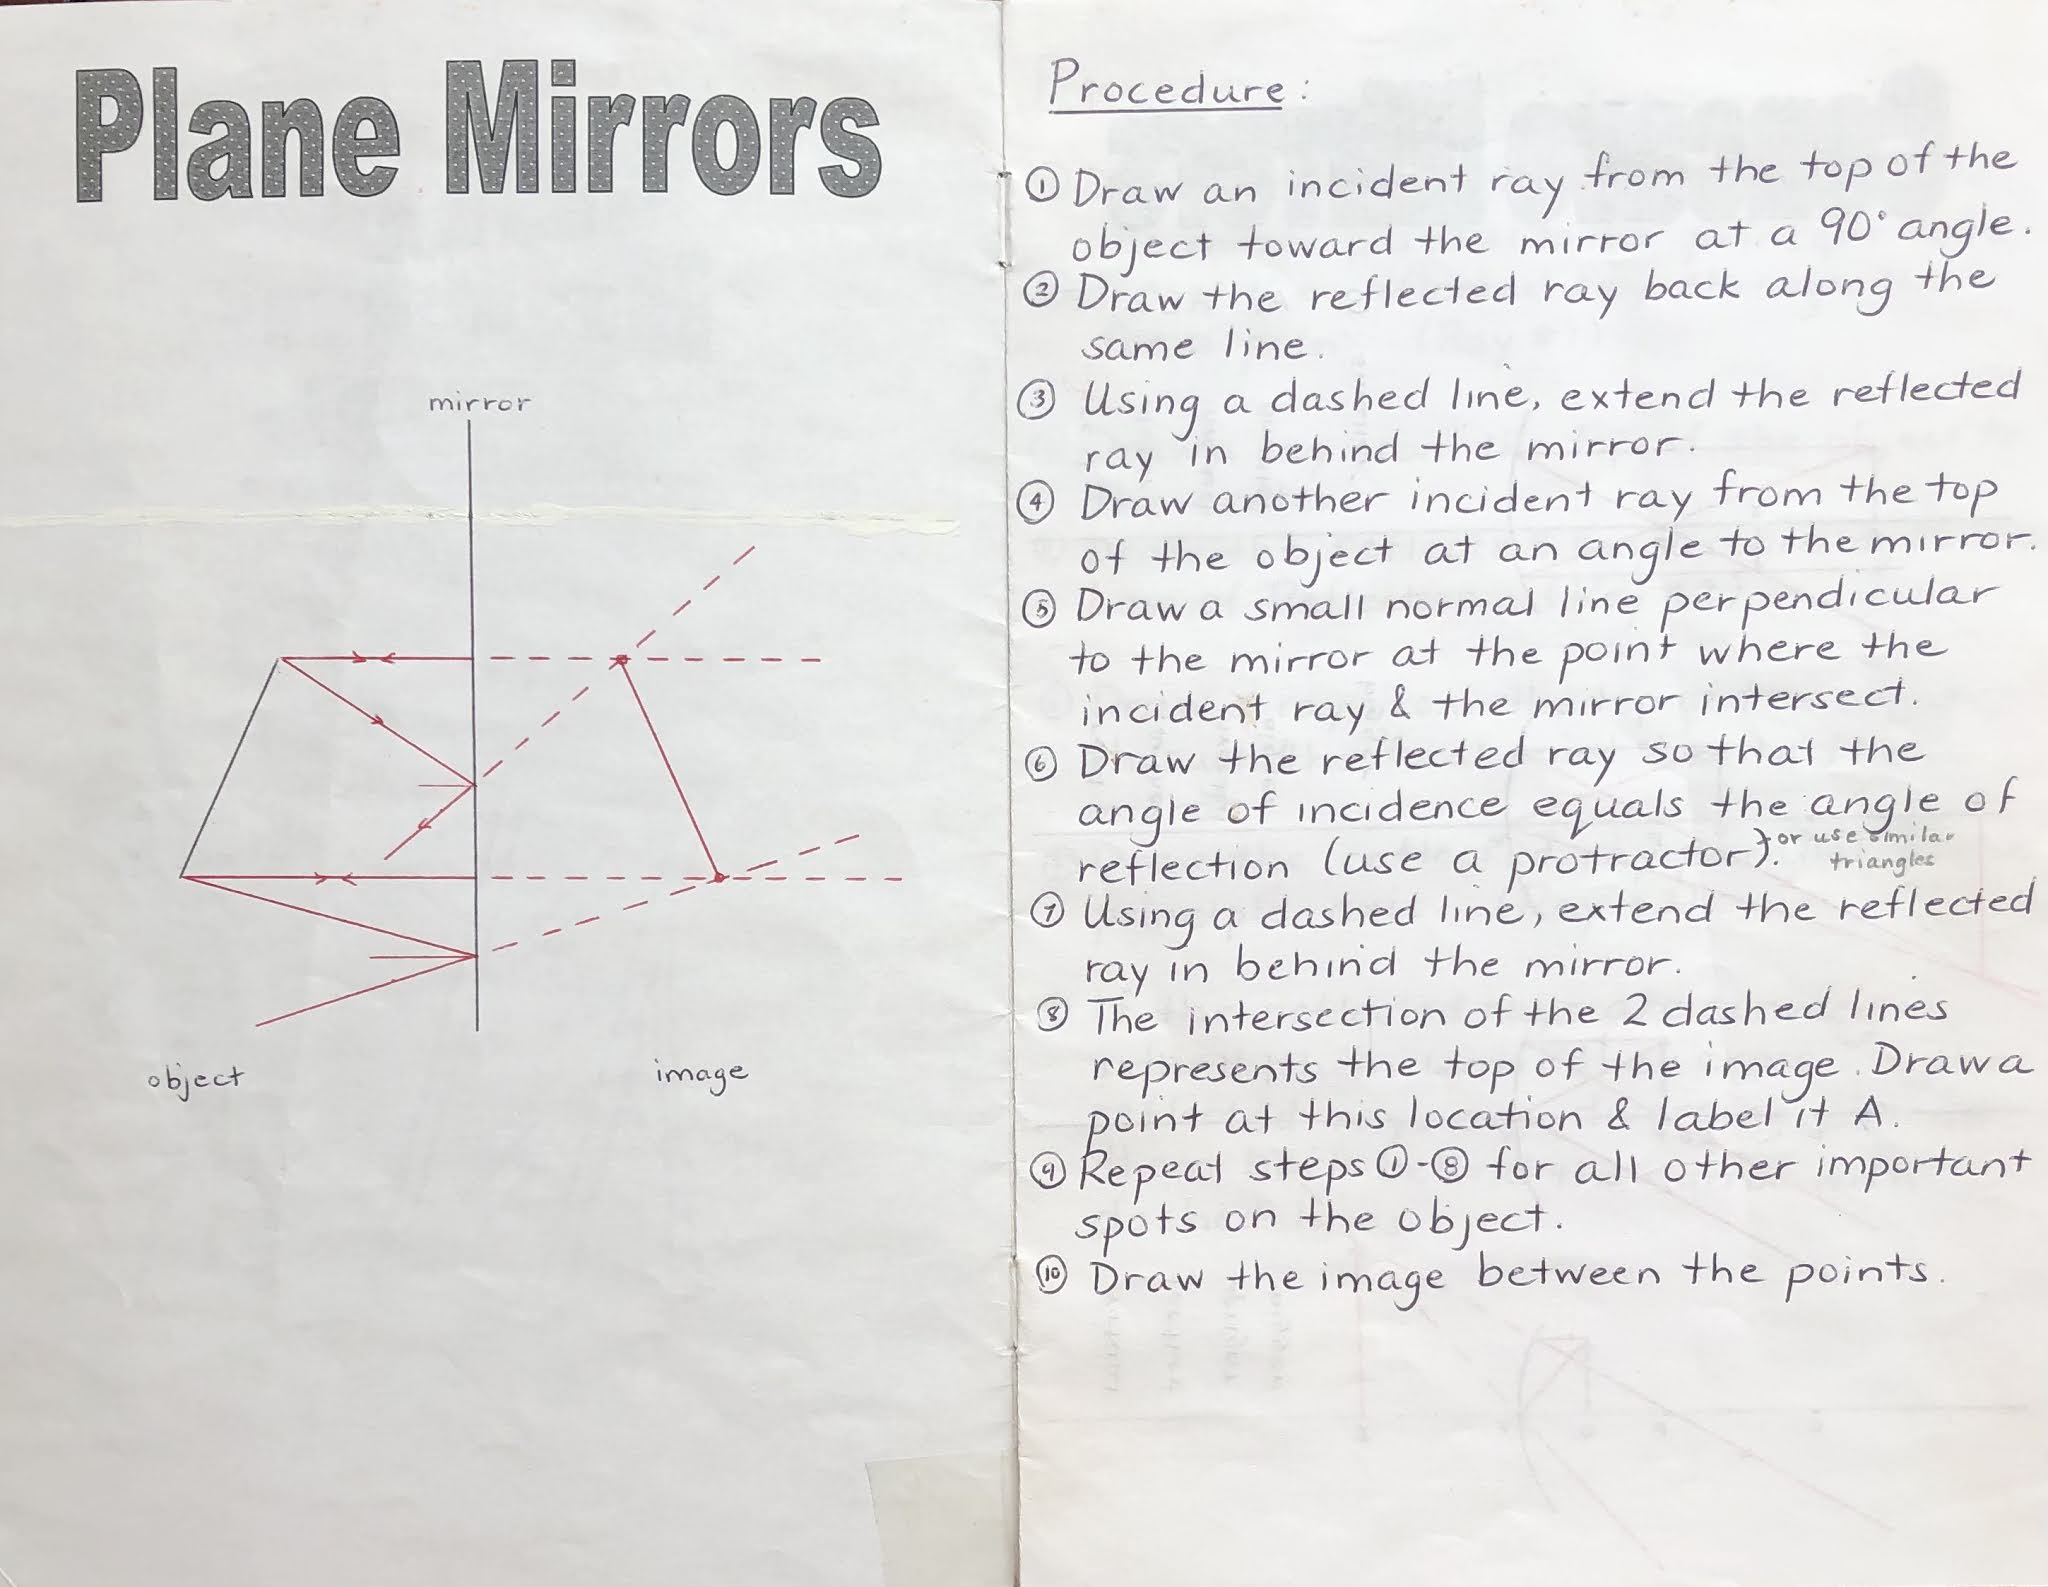 Plane Mirrors
mirror
object
image
Procedure:
① Draw an incident ray from the top of the
object toward the mirror at a 90° angle.
② Draw the reflected ray back along the
same line.
③ Using a dashed line, extend the reflected
ray in behind the mirror.
④ Draw another incident ray from the top
of the object at an angle to the mirror.
⑤ Draw a small normal line perpendicular
to the mirror at the point where the
incident ray & the mirror intersect.
⑥ Draw the reflected ray so that the
angle of incidence equals the angle of
reflection (use a protractor). or use similar
triangles
⑦ Using a dashed line, extend the reflected
ray in behind the mirror.
⑧ The intersection of the 2 dashed lines
represents the top of the image. Draw a
point at this location & label it A.
⑨ Repeat steps ①-⑧ for all other important
spots on the object.
⑩ Draw the image between the points.